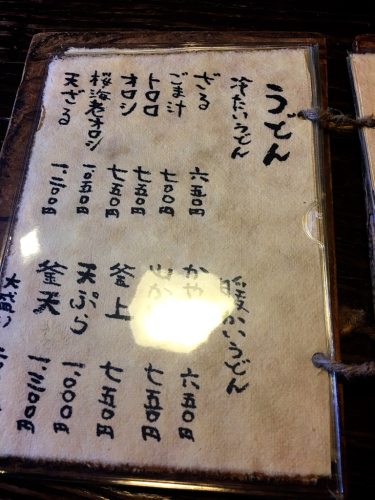 うどん
冷たいうどん
ざる 六五〇円
ごま汁 七〇〇円
トロロ 七五〇円
オロシ 七五〇円
桜海老オロシ 一、一五〇円
天ざる 一、三〇〇円
暖かいうどん
かや 六五〇円
山か 七五〇円
釜上 七五〇円
天ぷら 一、〇〇〇円
釜天 一、三〇〇円
大盛り